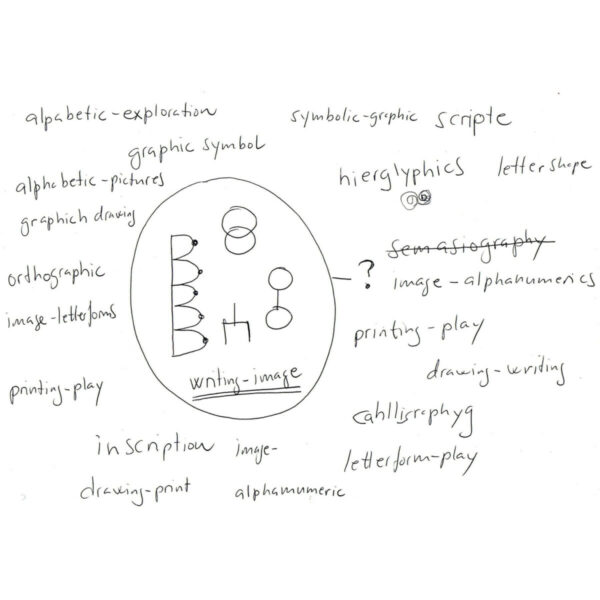 alpabetic-exploration
symbolic-graphic scripte
graphic symbol
hierglyphics lettershape
alphabetic-pictures
graphich drawing
semasiography
orthographic
?
image-alphanumerics
image-letterforms
printing-play
writing-image
drawing-writing
printing-play
cahlligraphyg
inscription image-
letterform-play
drawing-print alphamumeric